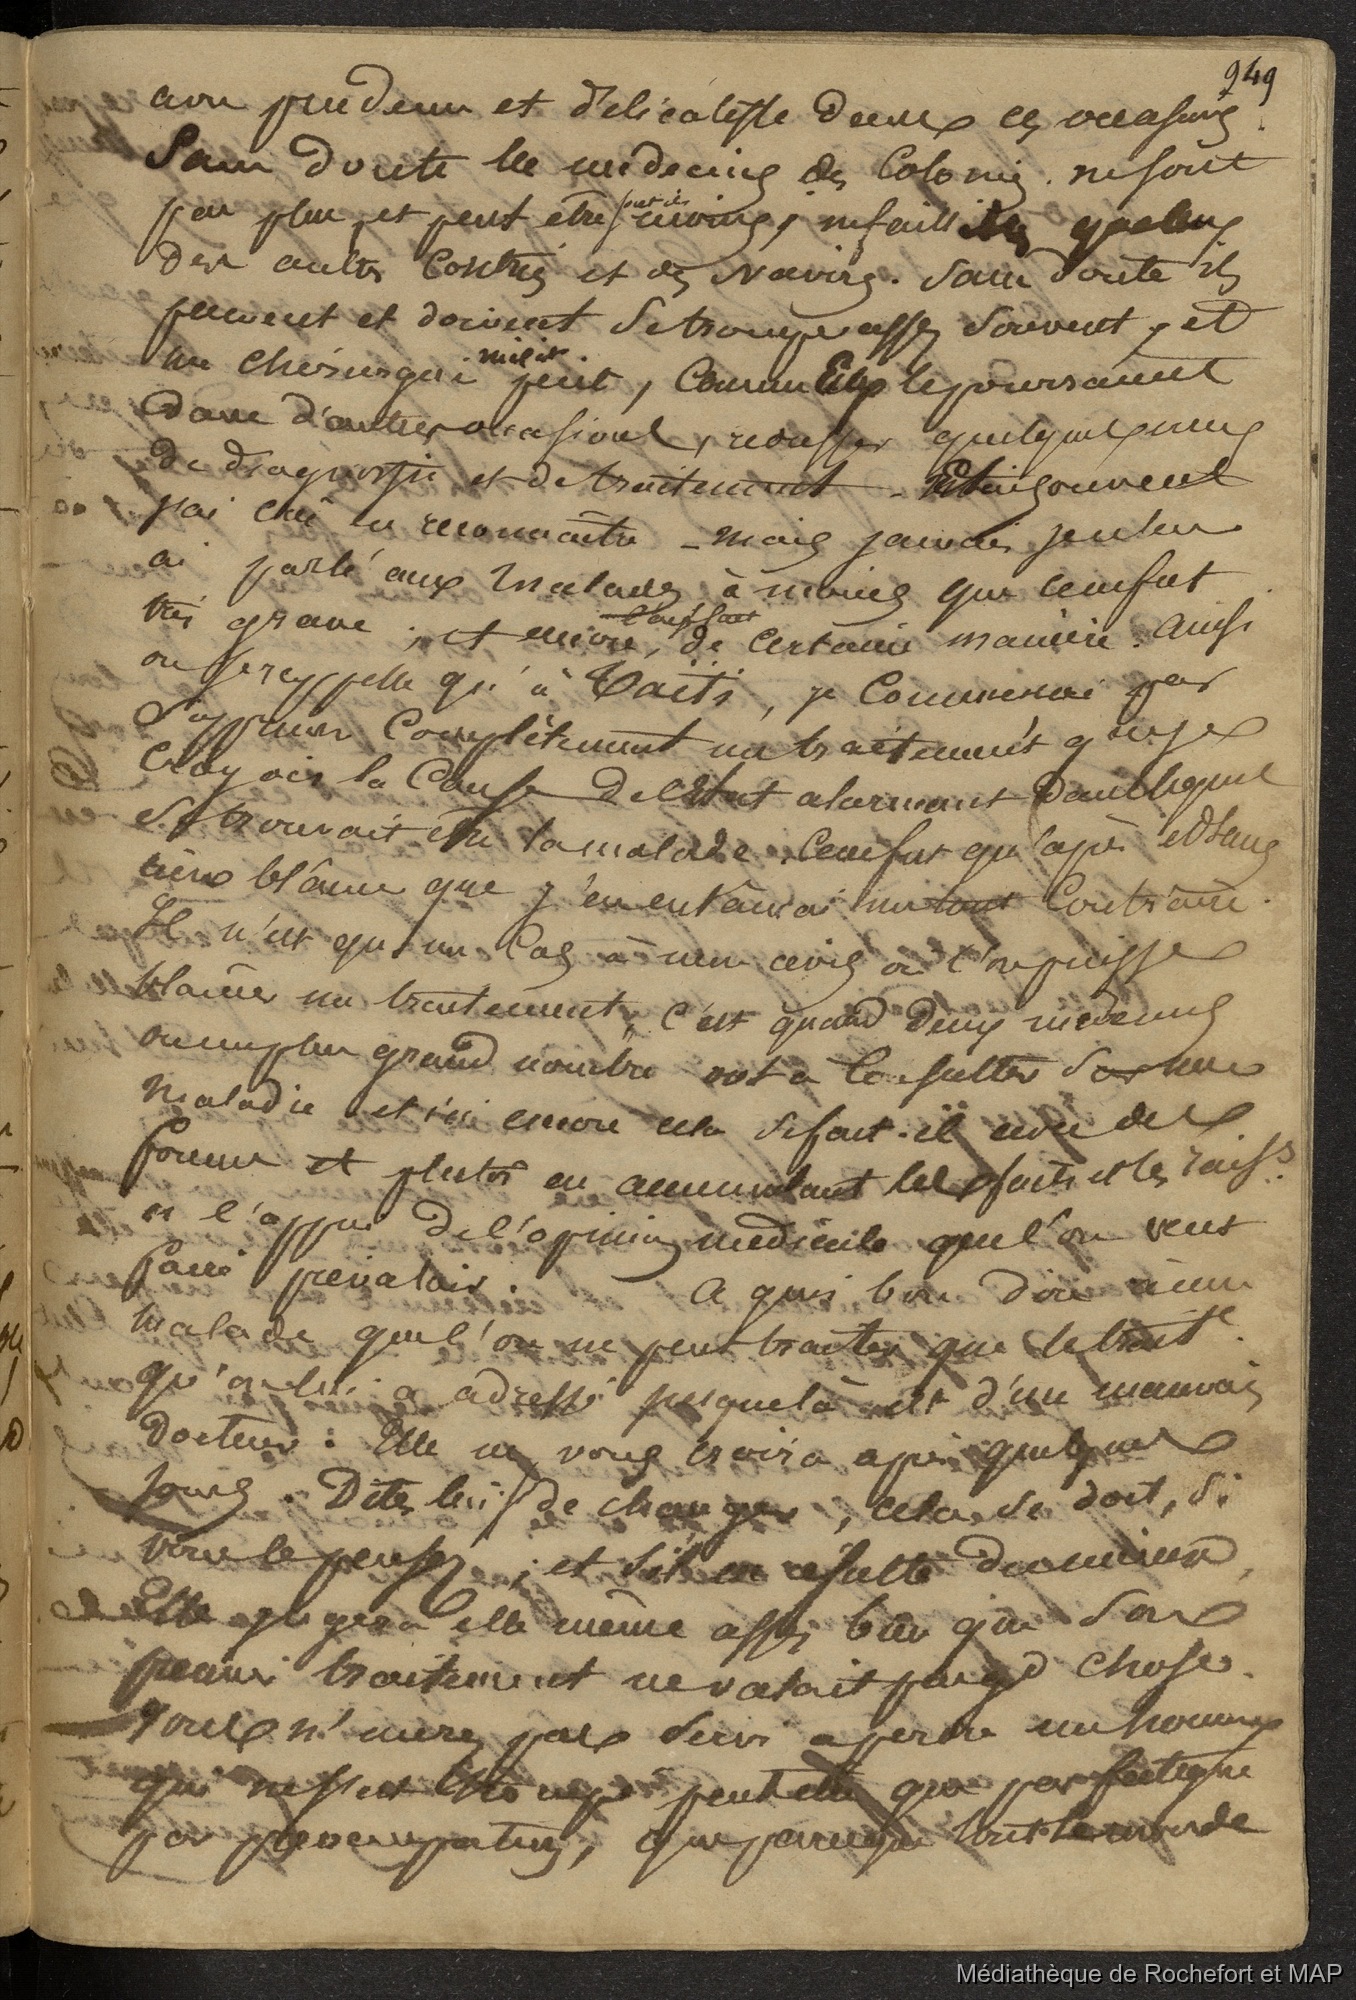 949
avec prudence et délicatesse dans ces occasions.
Sans doute les médecins des Colonies ne sont
pas plus, et peut être sont ils moins, infaillibles que ceux
des autres Contrées et des Navires. Sans doute ils
peuvent et doivent se tromper assez souvent, et
un chirurgien milit. peut, comme ils le pourraient
dans d'autres occasions, redresser quelques erreurs
de diagnostic et de traitement. souvent
j'ai cru en reconnaître - mais jamais je n'en
ai parlé aux malades, à moins que ce ne fut
très grave, et encore, de certaine manière. Ainsi
on se rappelle qu'à Taïti, je commençai par
supprimer complètement un traitement que je
croyais la cause de l'état alarmant dans lequel
se trouvait être la malade. Ce ne fut qu'après et sans
rien blâmer que j'en entamai un tout contraire.
Il n'est qu'un cas à mon avis où l'on puisse
blâmer un traitement, c'est quand deux médecins
ou un plus grand nombre ont à consulter sur une
maladie et ici encore cela se fait-il avec des
formes et plutôt en accumulant les faits et les rais.ns
à l'appui de l'opinion médicale que l'on veut
faire prévaloir. A quoi bon dire à une
malade que l'on ne peut traiter que le trait.t
qu'on lui a adressé jusque là est d'un mauvais
Docteur. Elle ne vous croira après quelques
jours. Dites lui de changer, cela se doit, si
vous le pensez, et s'il en résulte du mieux,
Elle jugera elle même assez bien que son
premier traitement ne valait pas gd chose.
Vous n'aurez pas servi à perdre un homme
qui ne s'est trompé peut être que par fatigue
par préoccupation, que parce que tout le monde
Médiathèque de Rochefort et MAP